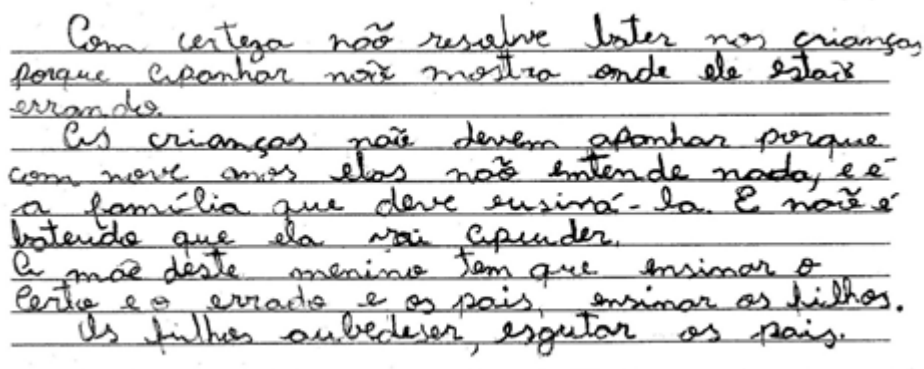 Com certeza não resolve bater nas crianças,
porque apanhar não mostra onde ele estais
errando.
As crianças não devem apanhar porque
com nove anos elas não entende nada, e é
a família que deve ensiná-la. E não é
batendo que ela vai apender.
A mãe deste menino tem que ensinar o
certo e o errado e os pais ensinar os filhos.
Os filhos aubedeser, esgutar os pais.